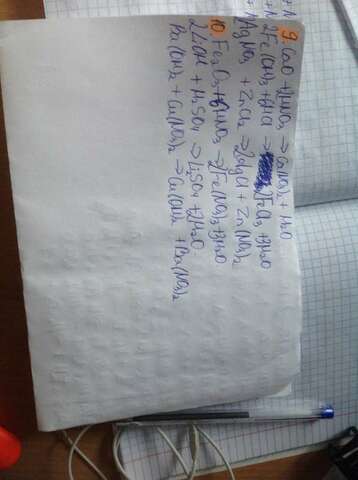 9. CaO + 2HNO₃ → Ca(NO₃)₂ + H₂O
2Fe(OH)₃ + 6HCl → 2FeCl₃ + 3H₂O
2AgNO₃ + ZnCl₂ → 2AgCl + Zn(NO₃)₂
10. Fe₂O₃ + 6HNO₃ → 2Fe(NO₃)₃ + 3H₂O
2LiOH + H₂SO₄ → Li₂SO₄ + 2H₂O
Ba(OH)₂ + Cu(NO₃)₂ → Cu(OH)₂ + Ba(NO₃)₂